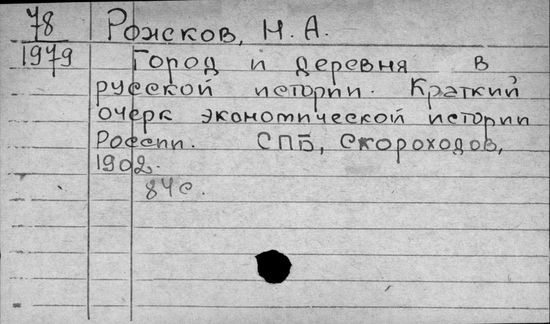 78 Рожков, Н. А.
1979 Город и деревня в
русской истории. Краткий
очерк экономической истории
России. СПБ, Скороходов,
1902.
84с.